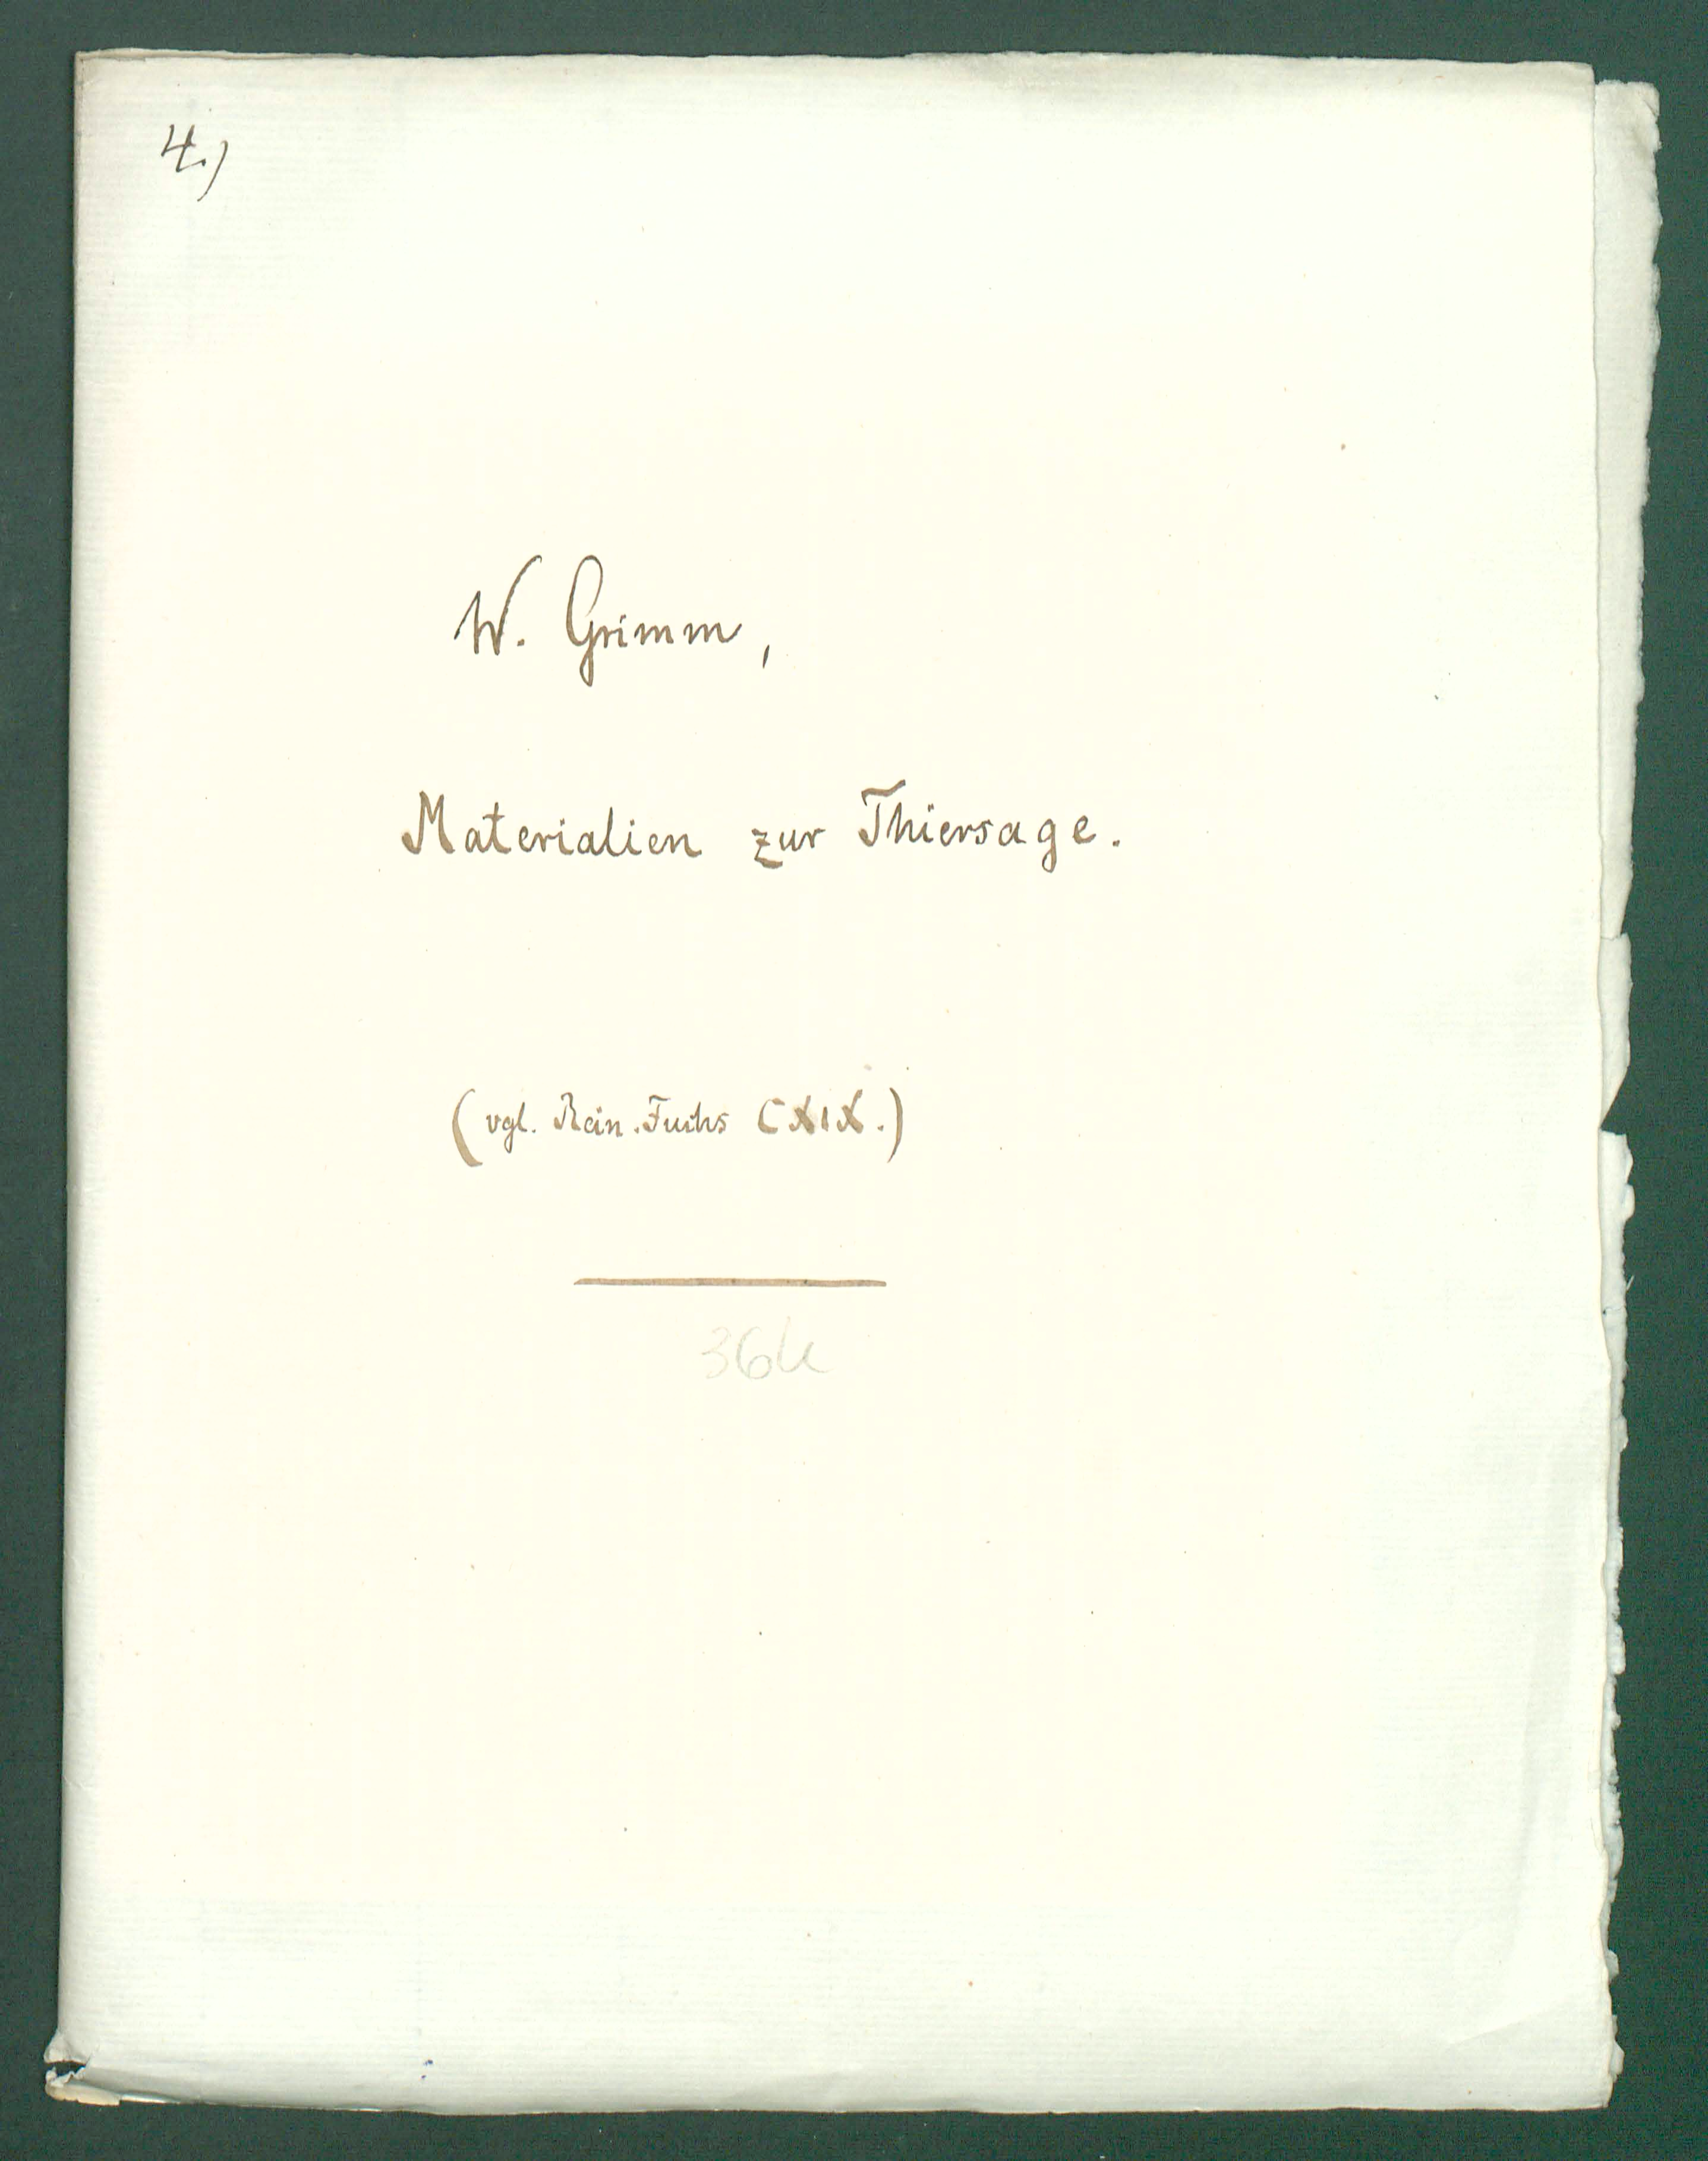 4.)
W. Grimm,
Materialien zur Thiersage.
(vgl. Rein. Fuchs CXIX.)